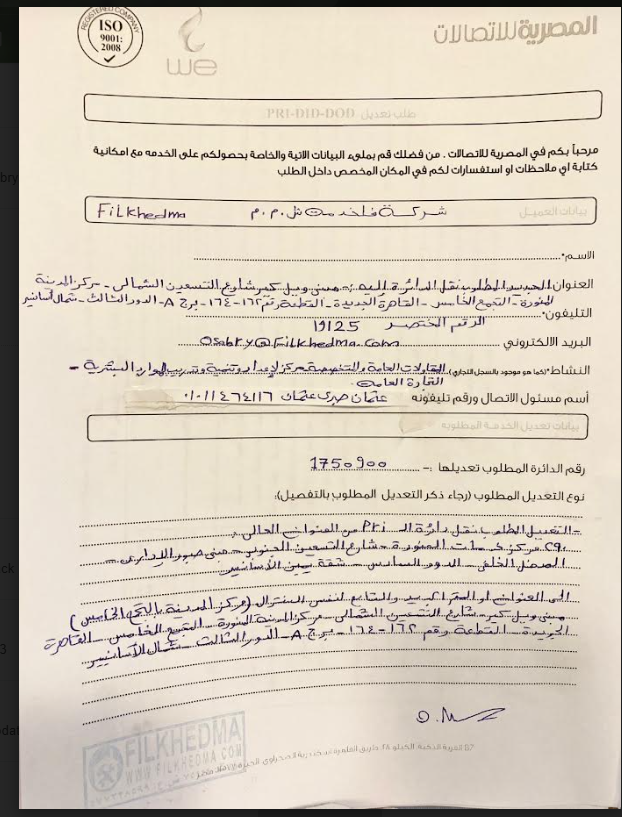 REGISTERED COMPANY
ISO
9001:
2008
we
المصرية للاتصالات
طلب تعديل PRI-DID-DOD
مرحباً بكم في المصرية للاتصالات . من فضلك قم بملىء البيانات الاتية والخاصة بحصولكم على الخدمه مع امكانية
كتابة اي ملاحظات او استفسارات لكم في المكان المخصص داخل الطلب
بيانات العميل
شركة فلخدمة ش.م.م Filkhedma
الاسم*
العنوان الجديد المطلوب نقل الدائرة إليه :- مبنى ويل كير شارع التسعين الشمالى - مركز المدينة
المنورة - التجمع الخامس - القاهرة الجديدة - القطعة رقم ١٦٢-١٦٤ - برج A - الدور الثالث - شمال أسانسير
التليفون* الرقم المختصر 19125
البريد الالكتروني Osabry@Filkhedma.com
النشاط*(كما هو موجود بالسجل التجاري) المقاولات العامة والتخصصية مركز لإعداد وتنمية وتدريب الموارد البشرية -
التجارة العامة.
أسم مسئول الاتصال ورقم تليفونه عثمان صبرى عثمان ٠١٠١١٤٦٤١١٦
بيانات تعديل الخدمة المطلوبه
رقم الدائرة المطلوب تعديلها :- 1750900
نوع التعديل المطلوب (رجاء ذكر التعديل المطلوب بالتفصيل):
- التعديل المطلوب نقل دائرة الـ Pri من العنوان الحالى :
٢٩٠ مركز خدمات المنورة - شارع التسعين الجنوبى - مبنى صبور الإدارى -
المدخل الخلفى - الدور السادس - شقة يمين الأسانسير
إلى العنوان أو المقر الجديد والتابع لنفس السنترال (مركز المدينة بالتجمع الخامس)
مبنى ويل كير - شارع التسعين الشمالى - مركز المدينة المنورة - التجمع الخامس - القاهرة
الجديدة - القطعة رقم ١٦٢-١٦٤ - برج A - الدور الثالث - شمال الأسانسير
FILKHEDMA
WWW.FILKHEDMA.COM